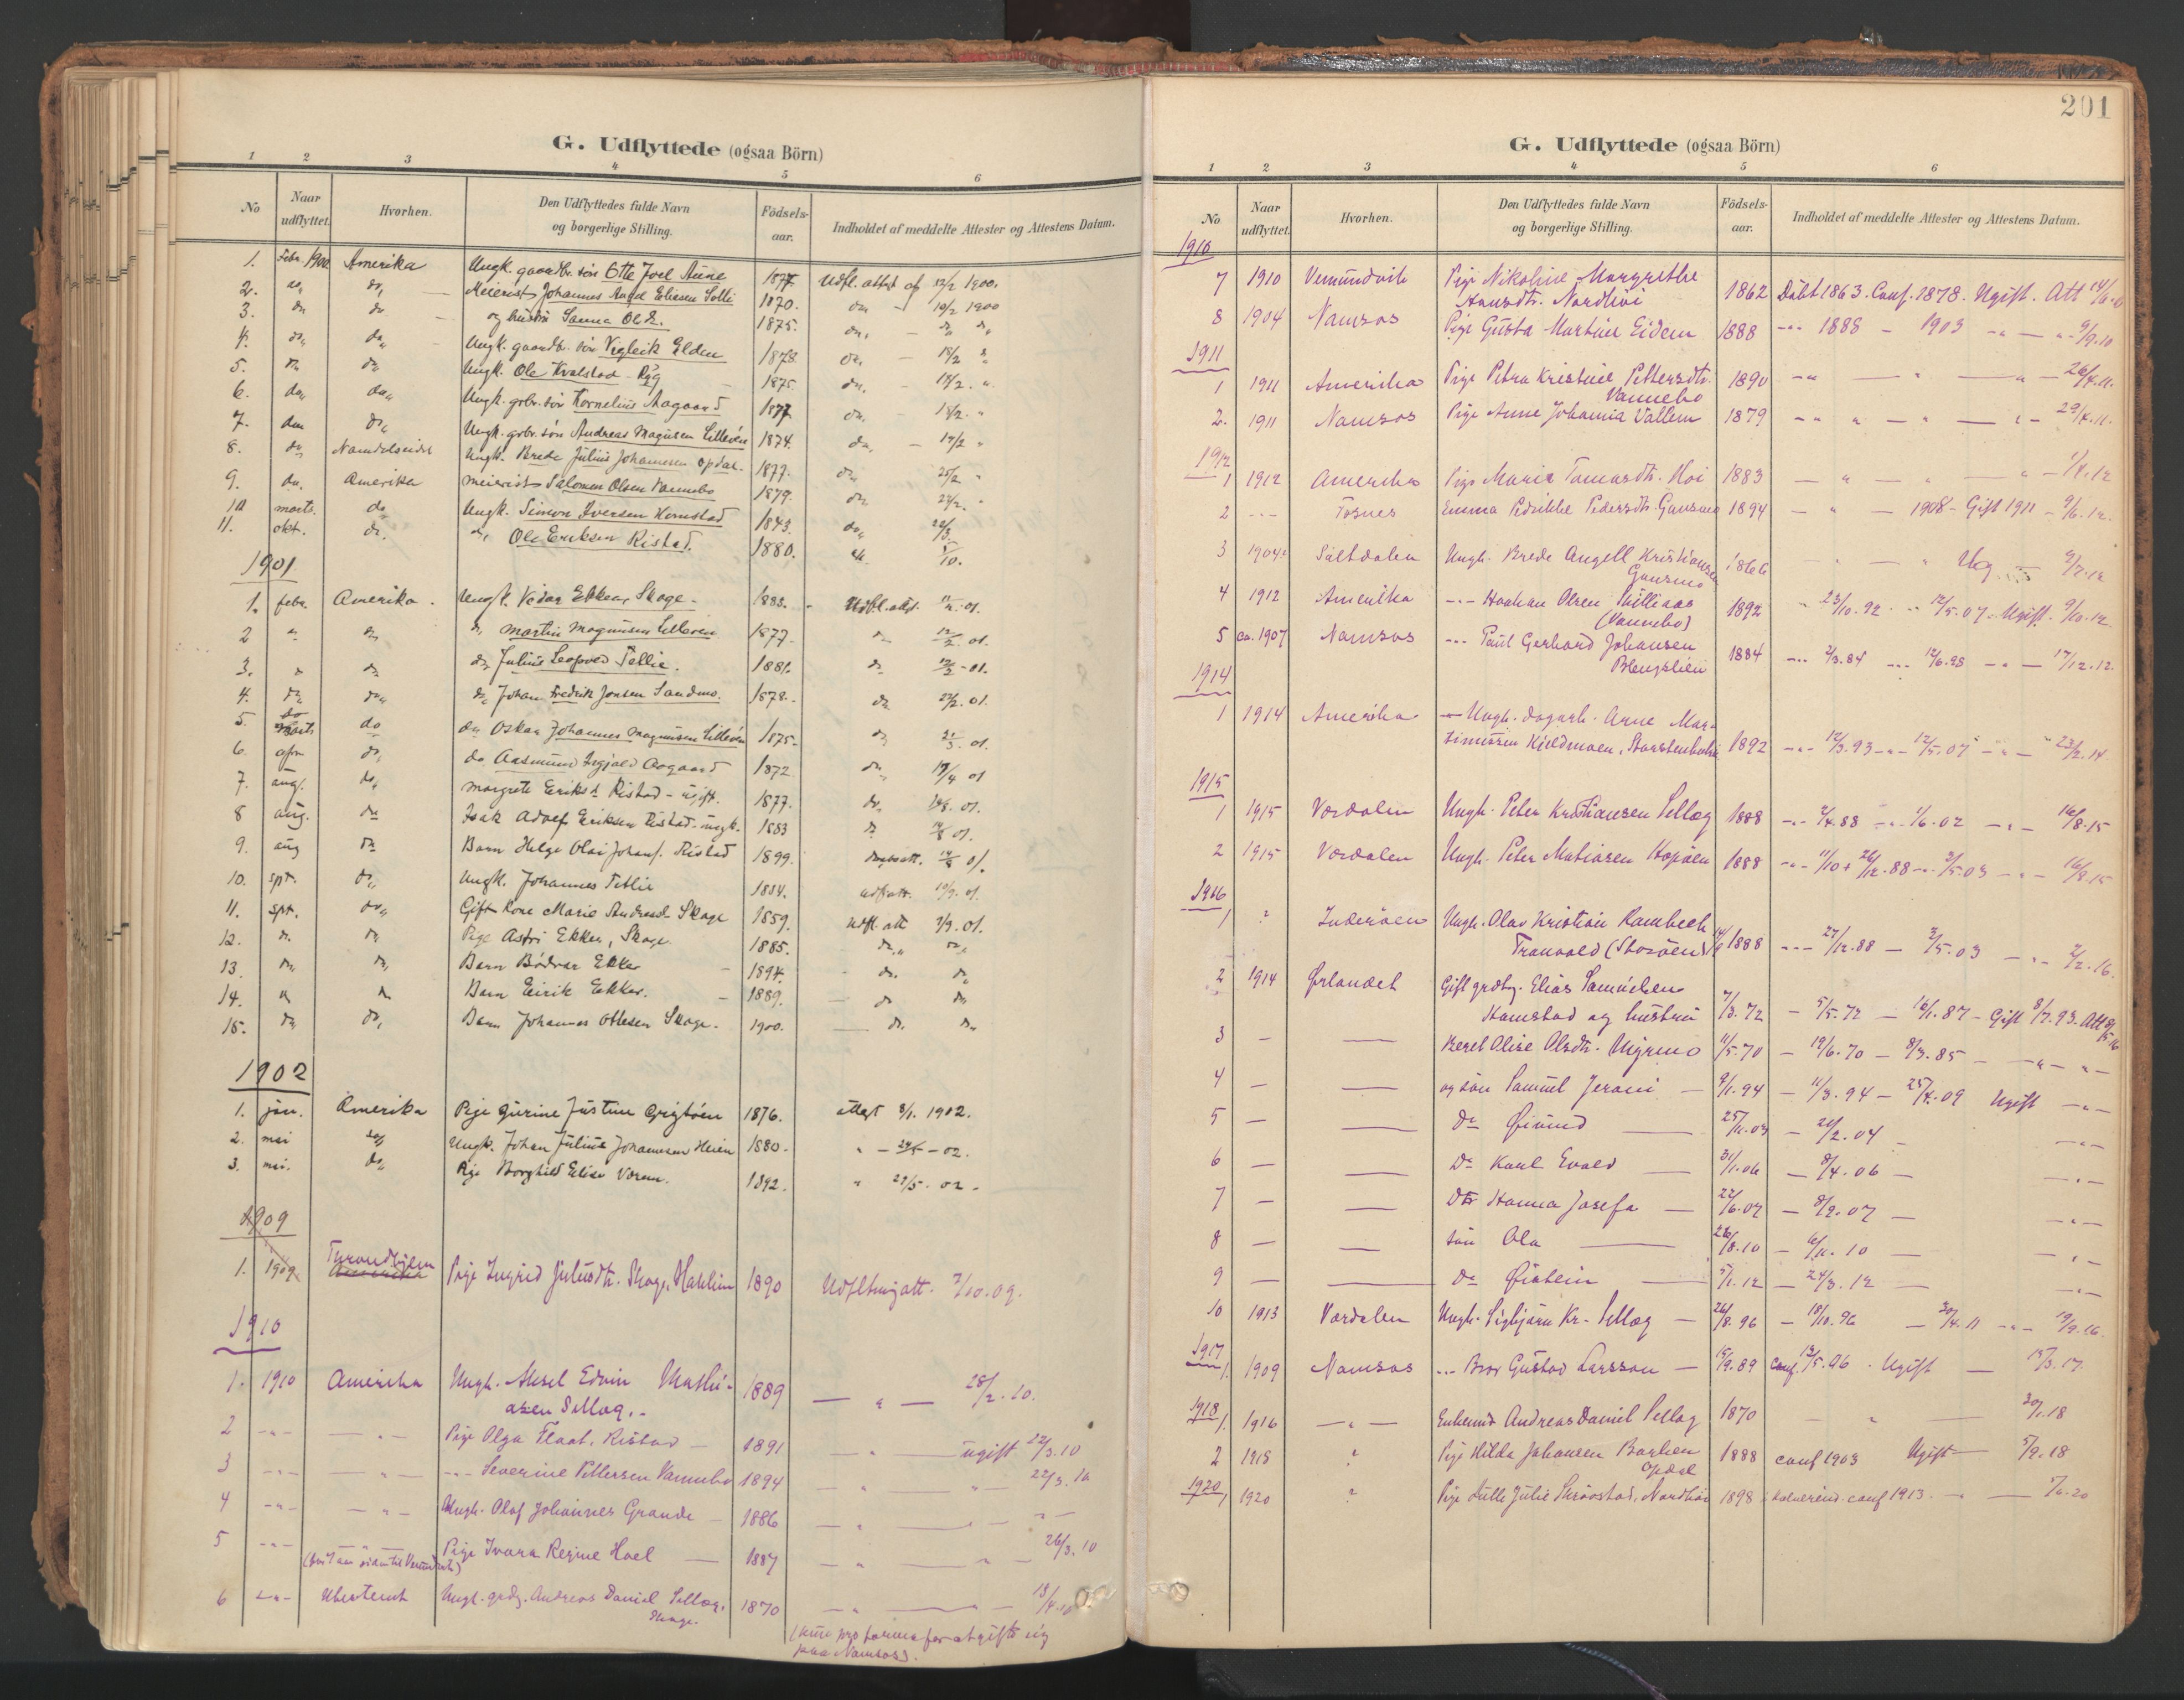 G. Udflyttede (ogsaa Börn)
1 2 3 4 5 6
No Naar udflyttet. Hvorhen. Den Udflyttedes fulde Navn og borgerlige Stilling. Födsels-aar. Indholdet af meddelte Attester og Attestens Datum.
1. Febr. 1900 Amerika Ungk. gaardbr. søn Otte Joel Aune 1877 Udfl. attest af 12/2 1900.
2. do, do, Meierist Johannes August Eliesen Solli 1870. do — 10/2 1900
3. do do. og hustru Sanna Olsdr. 1875. do, — do do
4. do, do, Ungk. gaardbr. søn Vigleik Elden 1878 do, — 15/2 do
5. do do Ungk. Ole Kvalstad - Ryg 1875. do. — 14/2 . "
6. do, do, Ungk. grbr. søn Kornelius Aagaard 1877 do. —
7. do do, Ungk. grbr. søn Andreas Magnusen Lilleøen 1874. do, — 17/2 "
8. do, Namdalseidet Ungk. Brede Julius Johannesen Opdal. 1877. do 25/2 "
9. do. Amerika Meierist Salomon Olsen Vannebo 1879. do 24/2.
10 marts. do Ungk. Simon Iversen Homstad 1843. do,
11. okt. do. do, Ole Eriksen Ristad. 1880. 5/10.
1901
1. febr. Amerika. Ungk. Vidar Ekker, Skage. 1883. Udfl. att. 01.
2 " do do, Martin Magnusen Lilleøen 1877. do 12/2 01.
3. " do do, Julius Leopold Tetlie. 1881. do 12/2 - 01.
4. do do do, Johan Fredrik Jonsen Sandmo. 1878. do 22/2. 01.
5. marts do do Oskar Johannes Magnusen Lilleøen 1875. do 21/3. 01.
6. apr do, do Aasmund Ingjald Aagaard 1872. do, 17/4 01
7. aug. do, Margrete Eriksd. Ristad - ugift. 1877. do. 01.
8 aug. do Isak Adolf Eriksen Ristad. ungk. 1883 do 14/8 01.
9. aug do Barn Helge Olai Johans. Ristad 1899. 14/8 01.
10. spt. do,, Ungk. Johannes Tetlie 1884. udfl. att. 10/9. 01.
11. spt. do,, Gift Kone Marie Andreasd. Skage 1859. udfl. att 01.
12. do. do, Pige Astri Ekker, Skage. 1885. do,, do,
13. do, do, Barn Bödvar Ekker 1894. do. do,
14. do do Barn Eirik Ekker. 1889. do do
15. do do, Barn Johannes Ottesen Skage. 1900. do. do
1902
1. jan. Amerika Pige Gurine Justine 1876. attest 3/1. 1902.
2. mai do Ungk. Johan Julius Johannesen Heien 1880. " — 24/5 - 02.
3. mai. do, Pige Borghild Elise Værem. 1892. " 29/5. 02.
1909
1. 1909 Trondhjem Amerika Pige Ingrid Juliusdtr. Skage, Haklien 1890 Udfltnigatt. 7/10.09.
1910
1. 1910 Amerika Ungk. Aksel Edvin Mathi-
asen Sellæg. 1889 — " — 28/2. 10.
2 -"- — " — Pige Olga Flaat, Ristad 1891 — " — ugift 12/3. 10
3 -"- — " — -"- Severine Pettersen Vannebo 1894 — " — " — 22/3. 10
4 -"- — " — Ungk. Olaf Johannes Grande 1886 — " — " —
5 -"- Pige Ivara Regine Hoel 1887 — " — " — 26/3. 10
6 -"- Ubestemt Ungk. grdg. Andreas Daniel Sellæg, Skage. 1870 — " — " — 18/4.10
(kun pro forma for at gifte sig
paa Namsos).
201
G. Udflyttede (ogsaa Börn)
1 2 3 4 5 6
No Naar udflyttet. Hvorhen. Den Udflyttedes fulde Navn og borgerlige Stilling. Födsels-aar. Indholdet af meddelte Attester og Attestens Datum.
1910
7 1910 Vemundvik Pige Nikoline Margrethe
Hansdtr. Nordhöi 1862 Döbt 1863. Conf. 1878. Ugift. Att
8 1904 Namsos Pige Gusta Martine Eidem 1888 -"- 1888 - 1903 -"- — 9/9.10
1911
1 1911 Amerika Pige Petra Kristine Pettersdtr.
Vannebo 1890 -"- — " — " — 26/4.11.
2. 1911 Namsos Pige Anne Johanna Vallem 1879 -"- " — " — 29/4.11.
1912
1 1912 Amerika Pige Maria Tomasdtr. Moi 1883 — " — " — 1/4.12
2 -"- Fosnes Emma Pedrikke Pedersdtr. Gansmo 1894 — " — 1908 - Gift 1911 - 9/6.12.
3 1904 Saltdalen Ungk. Brede Angell Kristiansen
Gansmo 1866 " Ug 9/7.12
4 1912 Amerika -"- Haakon Olsen Hilliaas
(Vannebo) 1892 " 23/10.92 -"- 12/5.07 - Ugift. 9/10.12.
5 ca. 1907 Namsos -"- Paul Gerhard Johansen
Blengslien 1884 -"- 2/3.84 -"- 12/6.98 -"- 17/12.12.
1914
1 1914 Amerika — Ungk. dagarb. Arne Mar-
tinussen Kjeldmoen, 1892 -"- 12/3.93 -"- 12/5.07 -"- 23/2.14.
1915
1 1915 Værdalen Ungk. Peter Kristiansen Sellæg 1888 -"- 2/4.88 -"- 1/6.02 -"- 16/8.15
2 1915 Værdalen Ungk. Peter Matiasen Hopøen 1888 -"- 11/10 + 26/12.88 -"- 3/5.03 -"- 16/8.15
1916
1 ? Inderøen Ungk. Olav Kristian Rambech
Tranvold (Storöen) 1888 -"- 27/12.88 - 3/5.03 -"- 2/2.16.
2 1914 Ørlandet Gift grdbg. Elias Samuelsen
Homstad og hustru 7/3.72 - 5/5.72 - 16/1.87 - Gift 8/7.93. Att
3 — — Beret Olise Olsdtr. Myrmo 11/5.70 - 19/6.70 - 8/3.85 - -"-
4 — — og sön Samuel Jeroni 9/1.94 - 11/3.94 - 25/4.09 Ugift -"-
5 — — Do Øivind 25/11.03 - 21/2.04 - -"-
6 — — Do Karl Evald 31/1.06 - 8/4.06 - -"-
7 — — Dtr Hanna Josefa 22/6.07 - 8/9.07 - -"-
8 — — sön Ola 26/8.10 - 6/11.10 - -"-
9 — — Do Øistein 5/1.12 - 24/3.12 - -"-
10 1913 Værdalen Ungk. Sigbjörn Kr. Sellæg 26/8.96 - 18/10.96 - 30/4.11 -"- 19/9.16.
1917
1. 1909 Namsos -"- Bror Gustav Larsson 15/9.89 conf. 13/5.06. Ugift — 15/3.17.
1918
1. 1916 — " — Enkemd. Andreas Daniel Sellæg 1870 — " — 30/1.18
2 1918 ? Pige Hilda Johansen Barken
Opdal 1888 conf 1903 Ugift 5/9.18
1920
1 1920 ? Pige Lulli Julie Skrøvstad, Nordhöi 1898 conf 1913. — " — 7/6.20